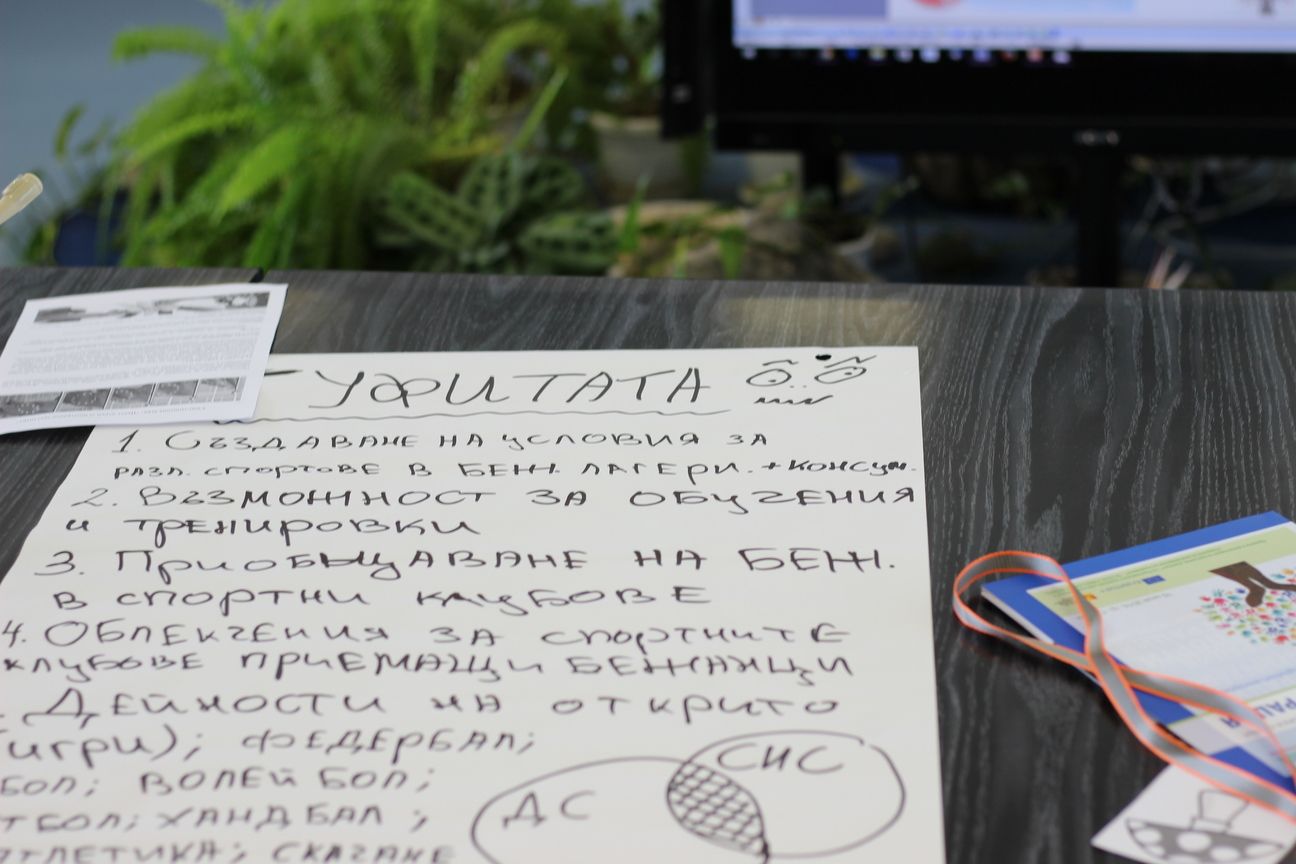 УФИТАТА
1. Създаване на условия за
разл. спортове в беж. лагери. + консум.
2. Възможност за обучения
и тренировки
3. Приобщаване на беж.
в спортни клубове
4. Облекчения за спортните
клубове приемащи бежанци
Дейности на открито
игри); федербал;
бол; волейбол;
тбол; хандбал;
тлетика; скачане
ДС
СИС
РАЦИЯ